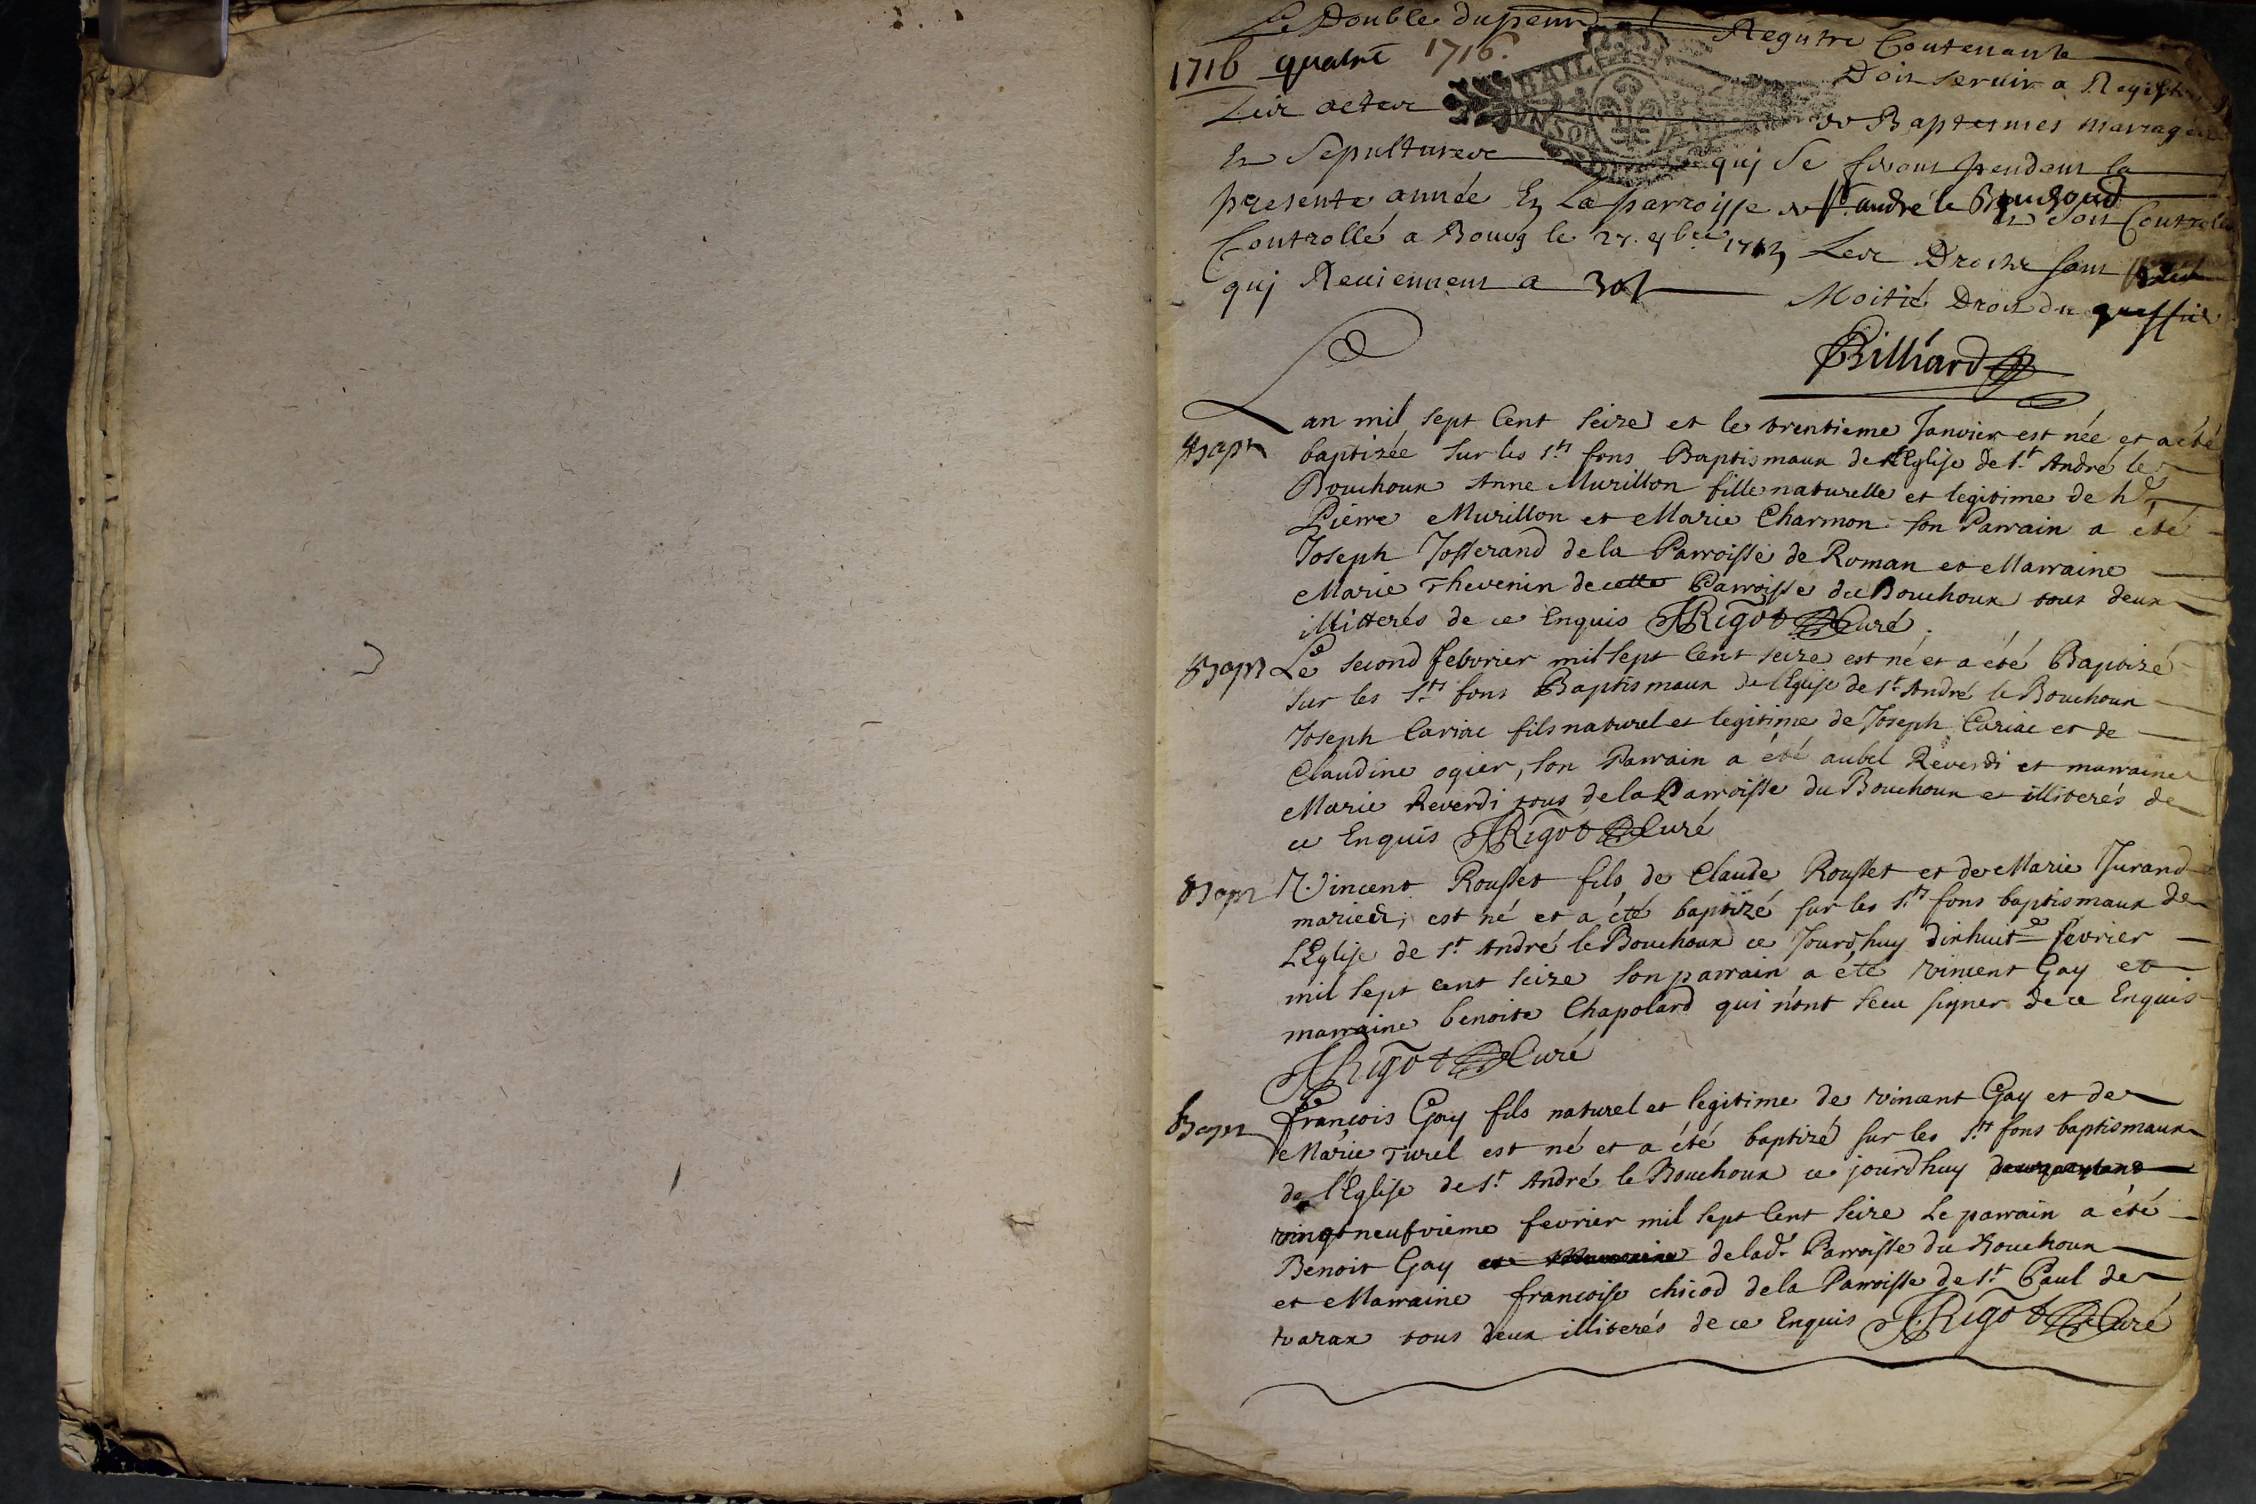 Le Double du Regitre Contenant
1716 quatre 1716. Doit servir a
Les actes de Baptesmes mariages
Et Sepultures quj se feront pendant la
presente année En La parroisse de st. andré le Bouchoud
Controllé a Bourg le 27. 9bre Les Droits sont
quj Reviennent a 30s Moitié Droit du greffier
Billiard
Bapt
Lan mil sept Cent seize et le trentieme Janvier est née et a été
baptizée sur les sts fons Baptismaux de l'Eglise de st. André le
Bouchoux Anne Murillon fille naturelle et legitime de h.
Pierre Murillon et Marie Charmon son Parrain a été
Joseph Josserand de la Parroisse de Roman et Marraine
Marie Thevenin de cette Parroisse du Bouchoux tous deux
illitterés de ce Enquis JRigot Curé
Bapt
Le second febvrier mil sept Cent seize est né et a été Baptizé
sur les sts fons Baptismaux de l'Eglise de st. André le Bouchoux
Joseph Cariac fils naturel et legitime de Joseph Cariac et de
Claudine ogier, son Parrain a été aubel Reverdi et marraine
Marie Reverdi tous de la Parroisse du Bouchoux et illiterés de
ce Enquis JRigot Curé
Bapt
Vincent Rousset fils de Claude Rousset et de Marie Jurand
mariez, est né et a été baptizé sur les sts fons baptismaux de
LEglise de st. André le Bouchoux ce Jourdhuy dixhuite fevrier
mil sept cent seize son parrain a été vincent Gay et
marraine benoite Chapolard qui n'ont sceu signer de ce Enquis
JRigot Curé
Bapt
françois Gay fils naturel et legitime de vincent Gay et de
Marie Turel est né et a été baptizé sur les sts fons baptismaux
de l'Eglise de st. André le Bouchoux ce jourdhuy
vingt neufvieme fevrier mil sept Cent seize Le parrain a été
Benoit Gay et Marraine de lade. Parroisse du Bouchoux
et Marraine francoise chicod de la Parroisse de st. Paul de
varax tous deux illiterés de ce Enquis JRigot Curé